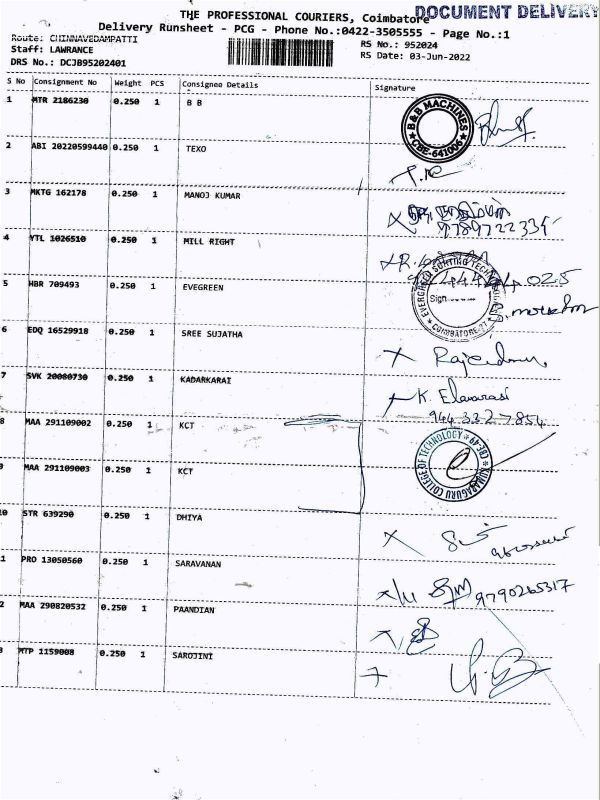 THE PROFESSIONAL COURIERS, Coimbatore
DOCUMENT DELIVERY
Delivery Runsheet - PCG - Phone No.:0422-3505555 - Page No.:1
Route: CHINNAVEDAMPATTI
Staff: LAWRANCE
DRS No.: DCJB95202401
RS No.: 952024
RS Date: 03-Jun-2022
S No Consignment No Weight PCS Consignee Details Signature
1 MTR 2186230 0.250 1 B B
B&B MACHINES
CBE-641006
2 ABI 20220599440 0.250 1 TEXO
3 MKTG 162178 0.250 1 MANOJ KUMAR
4 VTL 1026510 0.250 1 MILL RIGHT
5 HBR 709493 0.250 1 EVEGREEN
EVERGREEN SORTING
Sign
COIMBATORE-27
6 EDQ 16529918 0.250 1 SREE SUJATHA
7 SVK 20080730 0.250 1 KADARKARAI
K. Elavarasi
944 332 7854
8 MAA 291109002 0.250 1 KCT
KUMARAGURU COLLEGE OF TECHNOLOGY
CBE-49
9 MAA 291109003 0.250 1 KCT
10 STR 639290 0.250 1 DHIYA
1 PRO 13050560 0.250 1 SARAVANAN
9790265317
2 MAA 290820532 0.250 1 PAANDIAN
3 MTP 1159008 0.250 1 SAROJINI